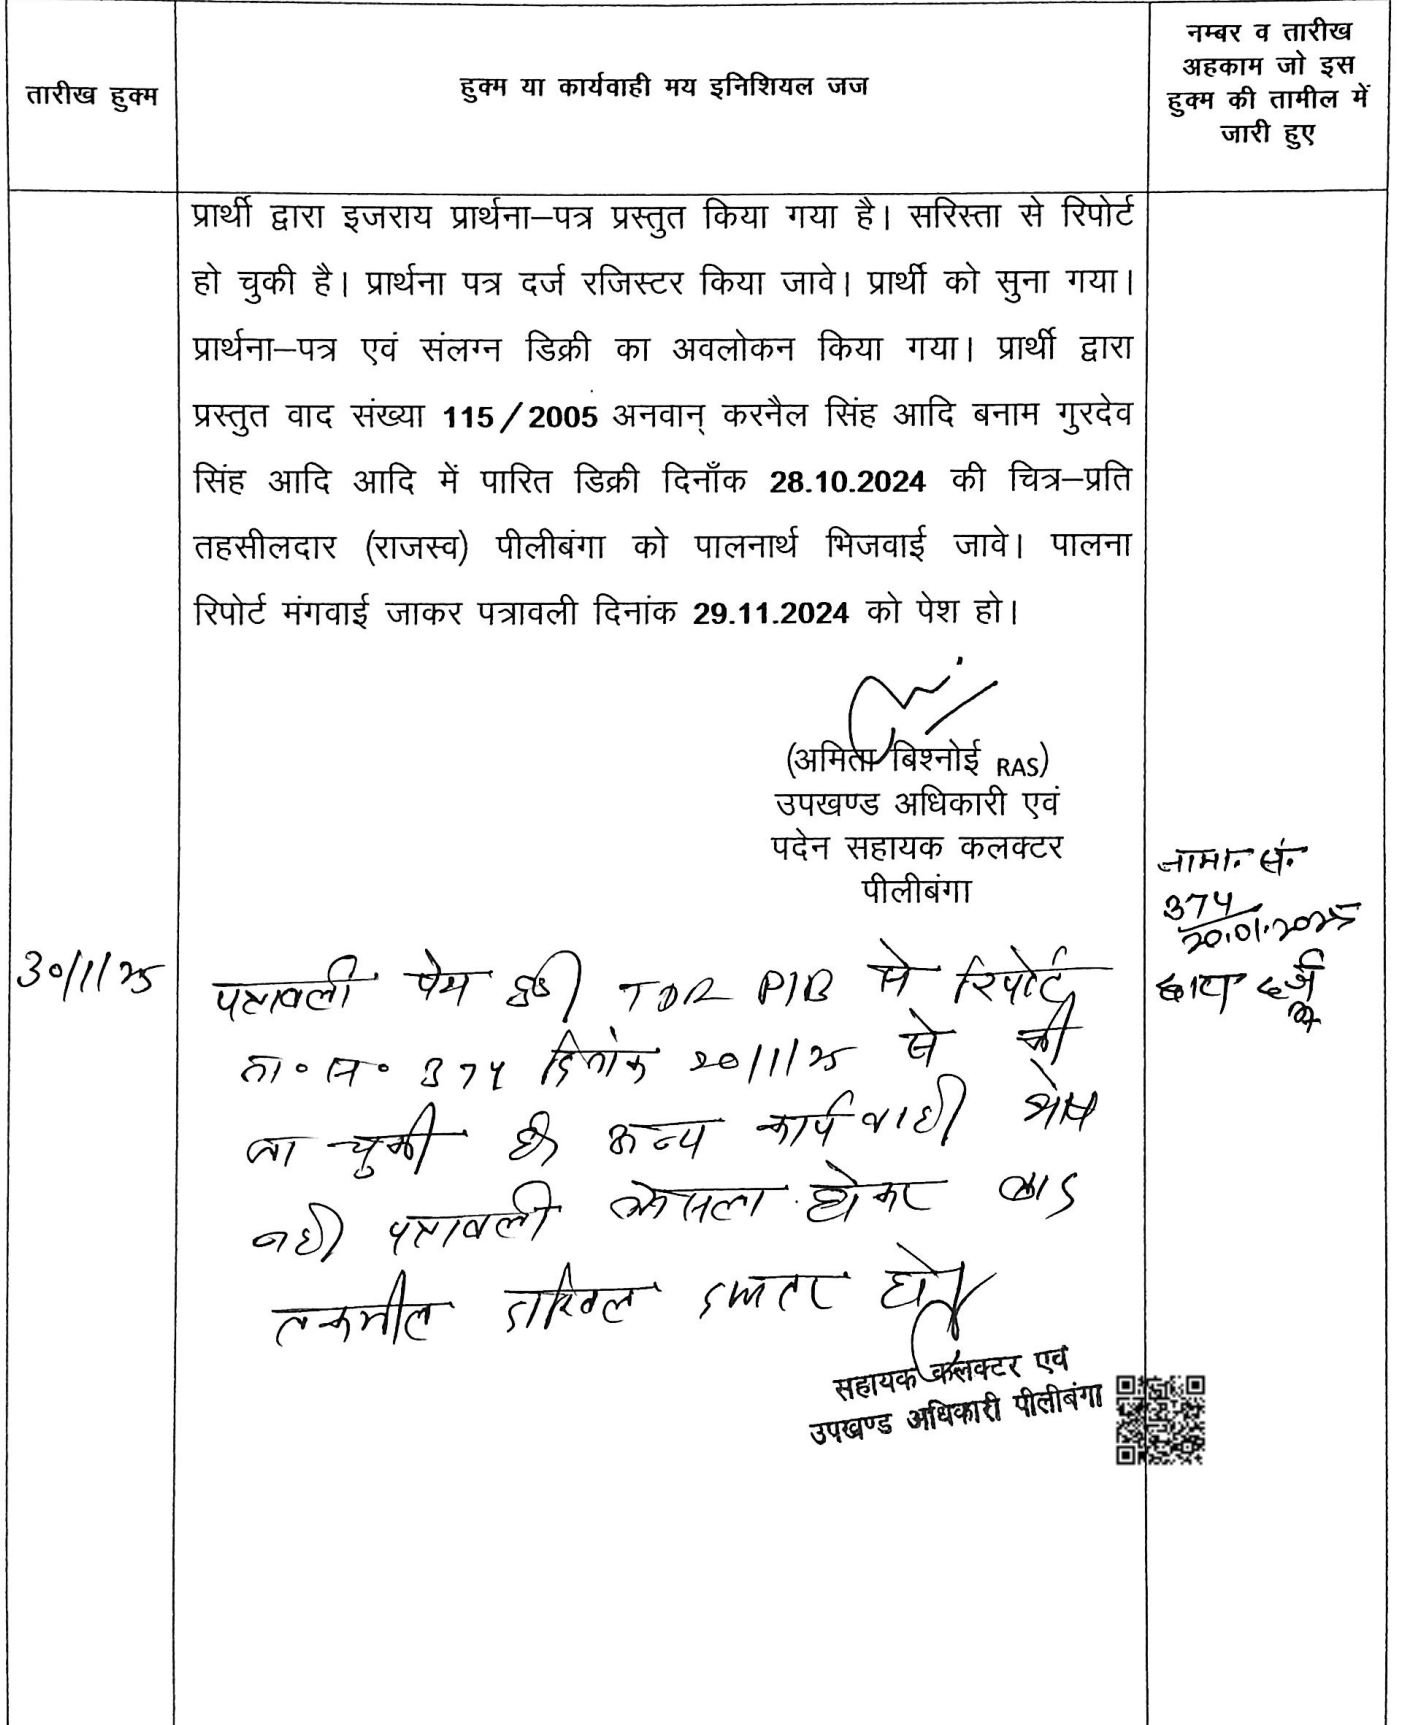 तारीख हुक्म
हुक्म या कार्यवाही मय इनिशियल जज
नम्बर व तारीख
अहकाम जो इस
हुक्म की तामील में
जारी हुए
प्रार्थी द्वारा इजराय प्रार्थना–पत्र प्रस्तुत किया गया है। सरिस्ता से रिपोर्ट
हो चुकी है। प्रार्थना पत्र दर्ज रजिस्टर किया जावे। प्रार्थी को सुना गया।
प्रार्थना–पत्र एवं संलग्न डिक्री का अवलोकन किया गया। प्रार्थी द्वारा
प्रस्तुत वाद संख्या 115/2005 अनवान् करनैल सिंह आदि बनाम गुरदेव
सिंह आदि आदि में पारित डिक्री दिनाँक 28.10.2024 की चित्र–प्रति
तहसीलदार (राजस्व) पीलीबंगा को पालनार्थ भिजवाई जावे। पालना
रिपोर्ट मंगवाई जाकर पत्रावली दिनांक 29.11.2024 को पेश हो।
(अमिता बिश्नोई RAS)
उपखण्ड अधिकारी एवं
पदेन सहायक कलक्टर
पीलीबंगा
नामा. सं.
374
20.01.2025
द्वारा दर्ज
30/1/25
पत्रावली पेश हुई TDR PIB से रिपोर्ट
374 दिनांक 20/1/25 से की
जा चुकी है अन्य कार्यवाही शेष
नही पत्रावली फैसला होकर बाद
तकमील दाखिल दफ्तर होवे
सहायक कलक्टर एवं
उपखण्ड अधिकारी पीलीबंगा